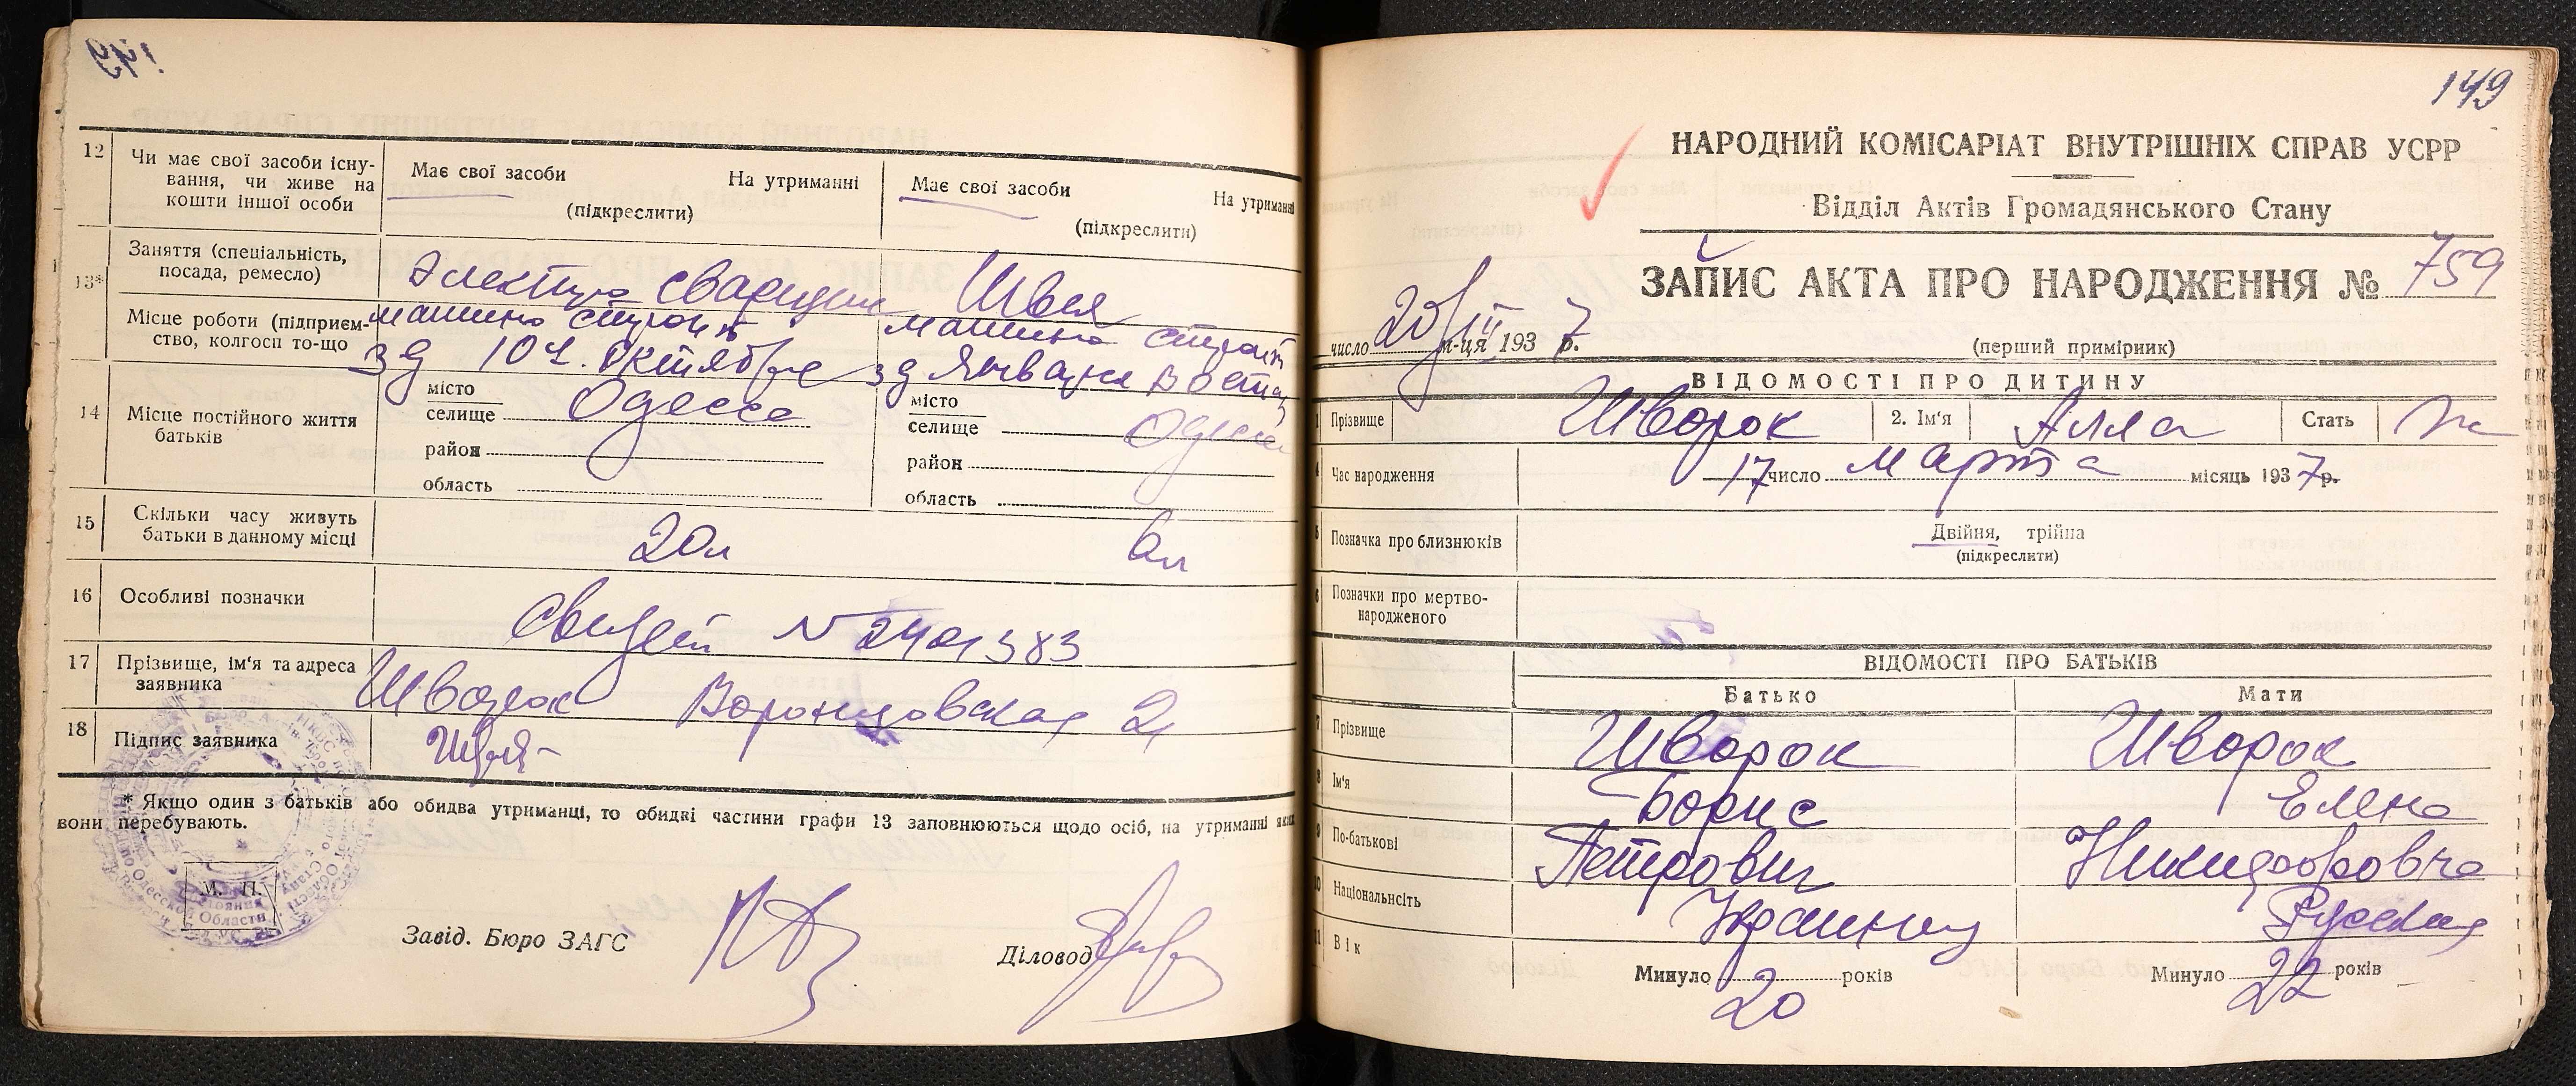 149
12
Чи має свої засоби існу-
вання, чи живе на
кошти іншої особи
Має свої засоби На утриманні
(підкреслити)
Має свої засоби На утриманні
(підкреслити)
13*
Заняття (спеціальність,
посада, ремесло)
Електро сварщик
Швея
Місце роботи (підприєм-
ство, колгосп то-що
машино строит
зд Октябрь
машино строит
зд Январск
14
Місце постійного життя
батьків
місто
селище Одесса
район
область
місто
селище Одесса
район
область
15
Скільки часу живуть
батьки в данному місці
20л
6л
16
Особливі позначки
Свидет № 2401383
17
Прізвище, ім'я та адреса
заявника
Шворок Воронцовская 2
18
Підпис заявника
* Якщо один з батьків або обидва утриманці, то обидві частини графи 13 заповнюються щодо осіб, на утриманні яких
вони перебувають.
М. П.
Завід. Бюро ЗАГС
Діловод
149
НАРОДНИЙ КОМІСАРІАТ ВНУТРІШНІХ СПРАВ УСРР
Відділ Актів Громадянського Стану
ЗАПИС АКТА ПРО НАРОДЖЕННЯ № 759
число 20/III м-ця 1937 р.
(перший примірник)
ВІДОМОСТІ ПРО ДИТИНУ
1 Прізвище Шворок 2. Ім'я Алла Стать ж
4 Час народження 17 число марта місяць 1937 р.
5 Позначка про близнюків Двійня, трійна
(підкреслити)
6 Позначки про мертво-
народженого
ВІДОМОСТІ ПРО БАТЬКІВ
Батько Мати
7 Прізвище Шворок Шворок
8 Ім'я Борис Елена
9 По-батькові Петрович Никифоровна
10 Національність Украинец Русская
11 Вік
Минуло 20 років Минуло 22 років